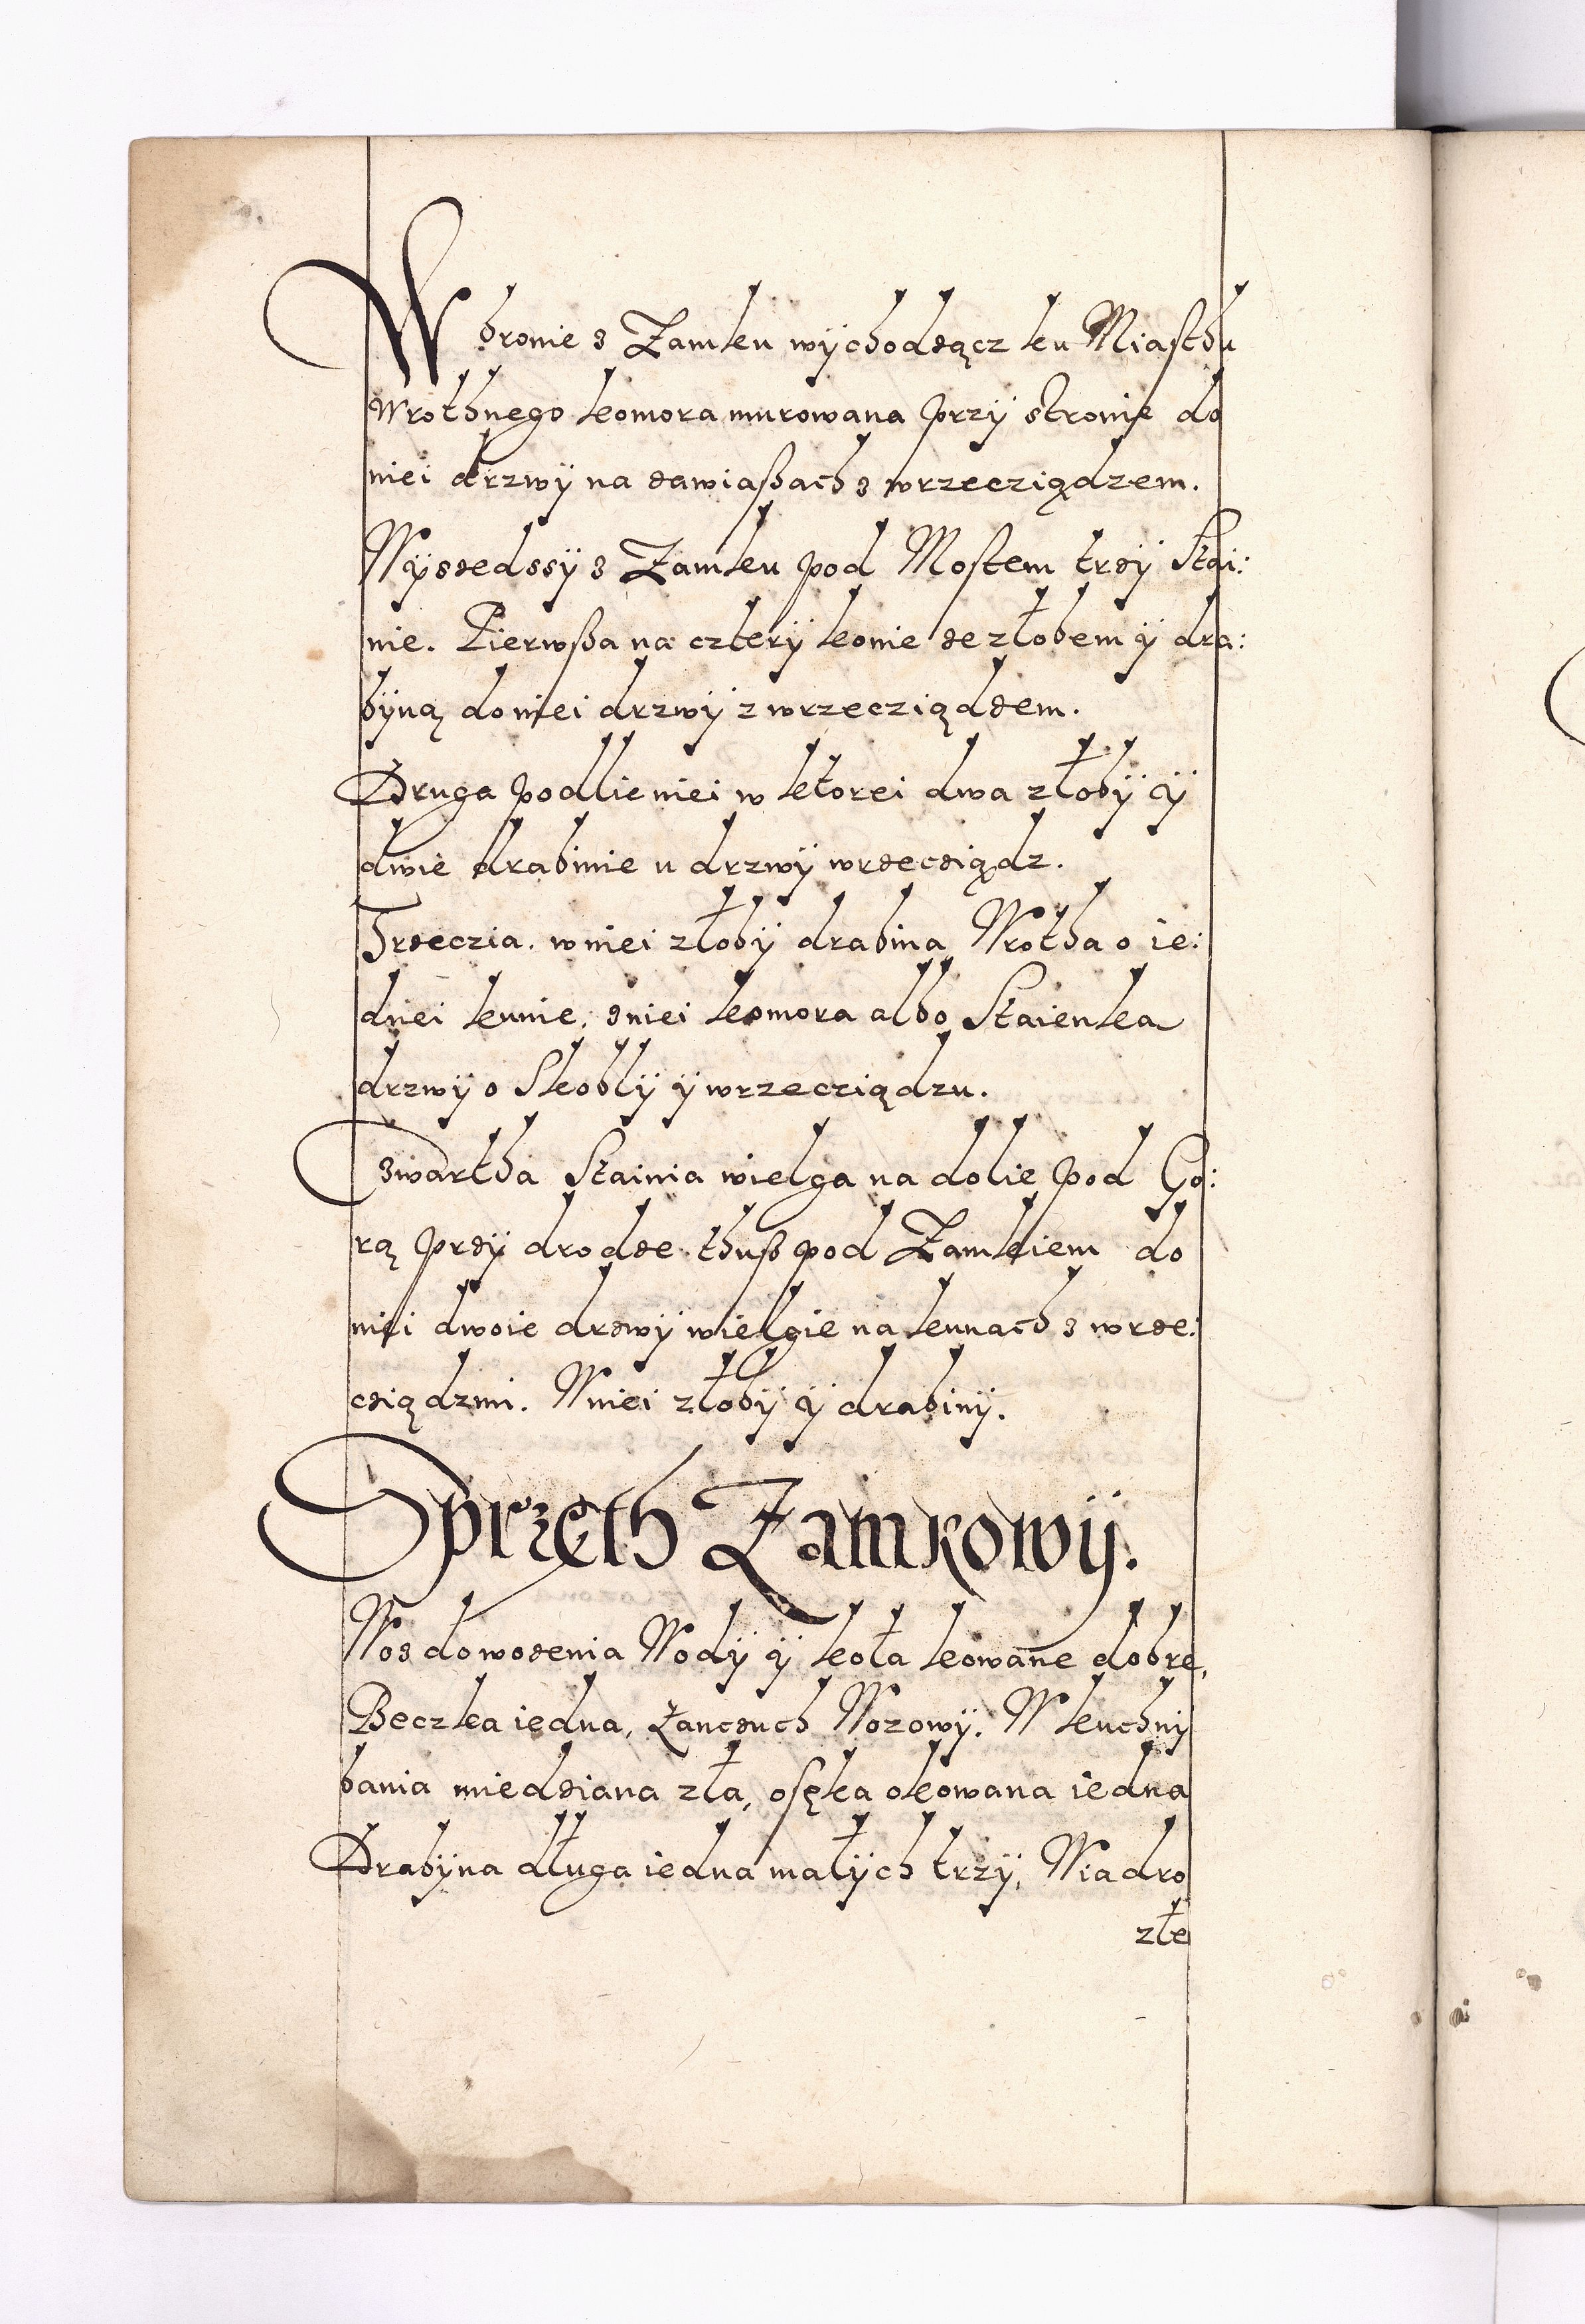 W bronie z Zamku wÿchodzącz ku Miasthu
Wrothnego komora murowana przÿ stronie do
niei drzwÿ na zawiaßach z wrzecziądzem.
Wÿszedssÿ z Zamku pod Mostem trzÿ Stai:
nie. Pierwßa na czterÿ konie ze złobem ÿ dra:
bÿną do niei drzwÿ z wrzecziądzem.
Druga podlie niei w ktorei dwa złobÿ ÿ
dwie drabinie u drzwÿ wrzecziądz.
Trzeczia. w niei złobÿ drabina Wrotha o ie:
dnei kunie. z niei komora albo Staienka
drzwÿ o Skoblÿ ÿ wrzecziądzu.
Czwartha Stainia wielga na dolie pod Go:
rą przÿ drodze thuß pod Zamkiem do
niei dwoie drzwÿ wielgie na kunach z wrze:
cziądzmi. W niei złobÿ ÿ drabinÿ.
Sprzęth Zamkowÿ.
Woz do wozenia Wodÿ ÿ koła kowane dobre,
Beczka iedna, Łanczuch Wozowÿ. W kuchnÿ
bania miedziana zła, osęka okowana iedna
Drabÿna długa iedna małÿch trzÿ, Wiadro
złe